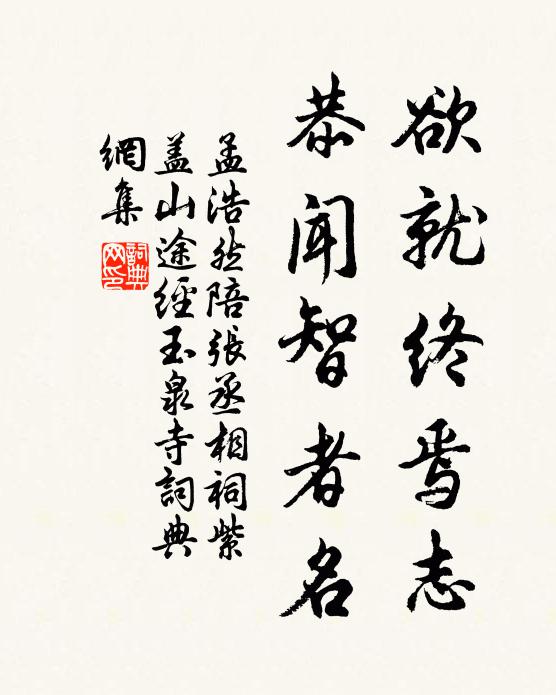 欲就终焉志
恭闻智者名
孟浩然陪张丞相祠紫
盖山途經玉泉寺詞典
網集
詞典
网印